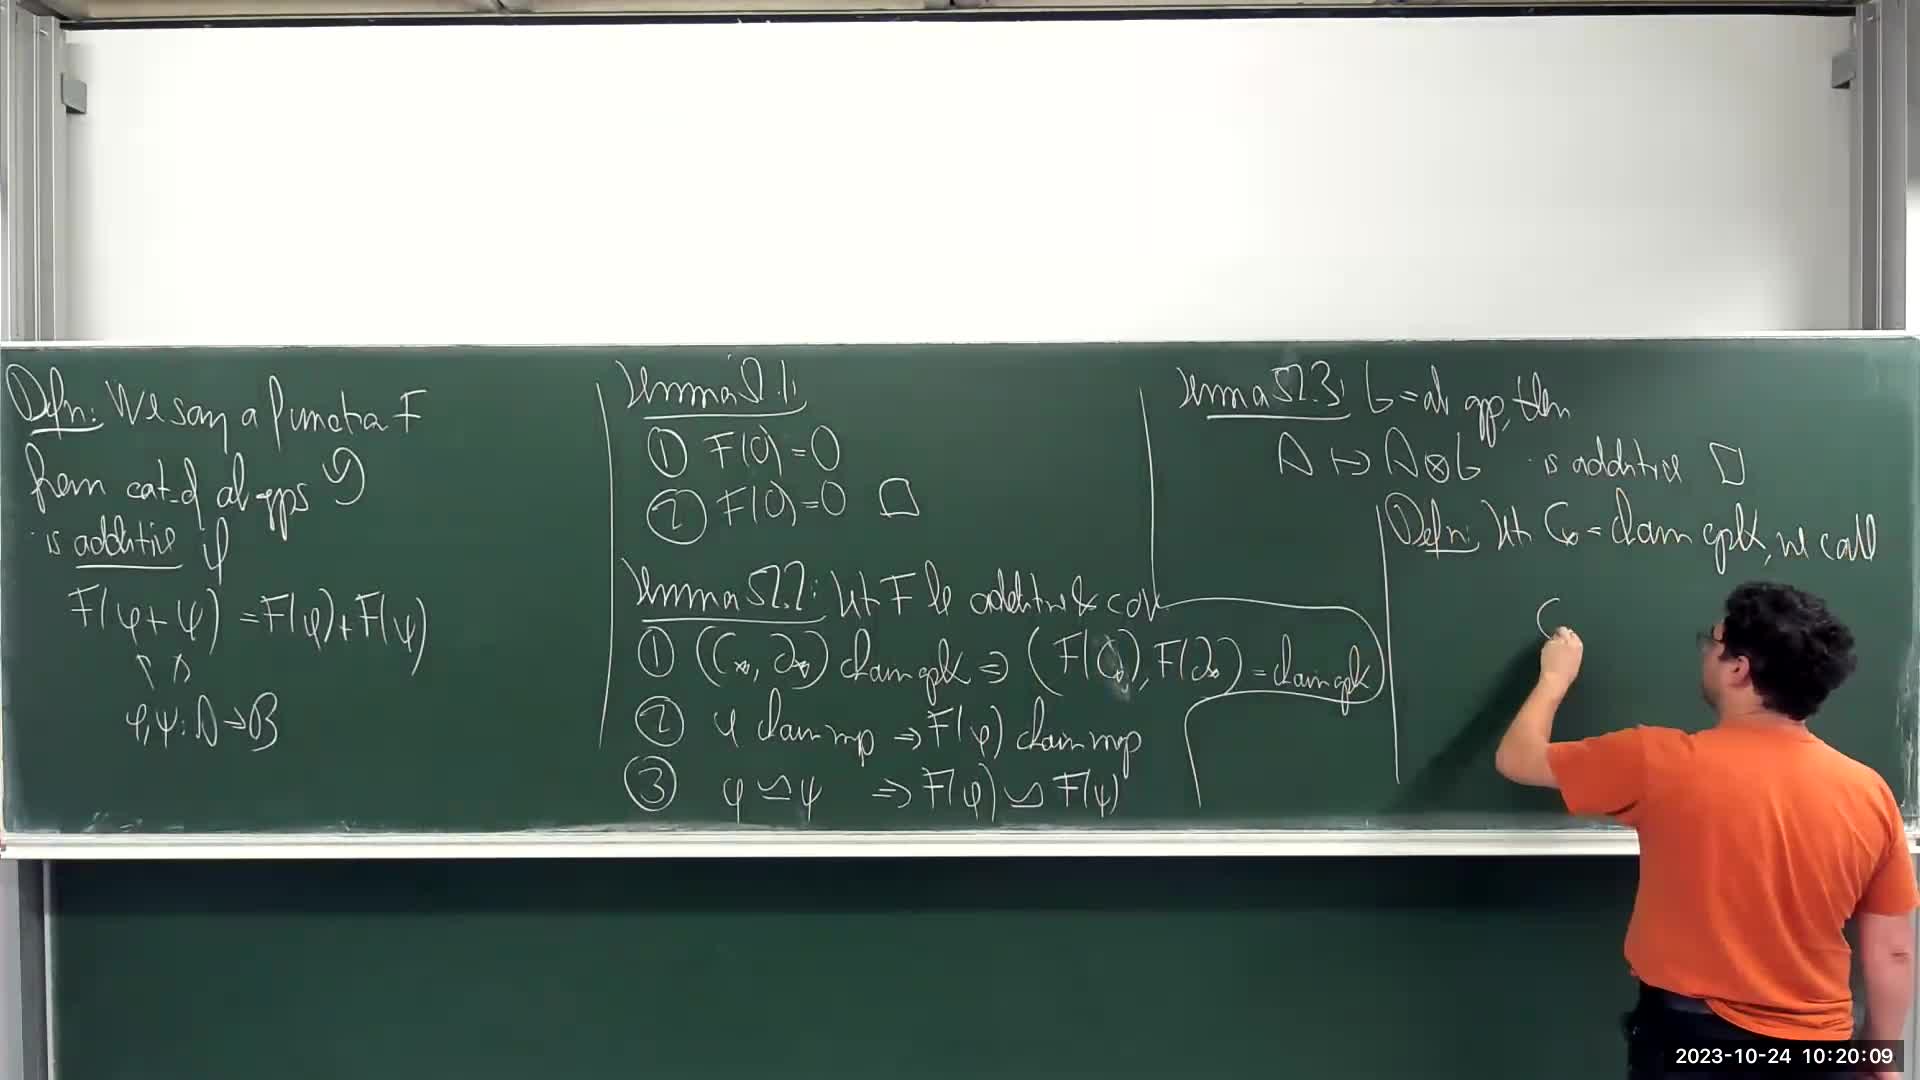 Defn: We say a functor F
from cat. of ab gps ↺
is additive if
F(φ+ψ) = F(φ)+F(ψ)
φ,ψ: A → B
Lemma 52.1:
① F(0)=0
② F(0)=0 □
Lemma 52.2: Let F be additive & cov
① (C_*, ∂_*) chain cplx ⇒ (F(C_*), F(∂_*)) = chain cplx
② φ chain map ⇒ F(φ) chain map
③ φ ≃ ψ ⇒ F(φ) ≃ F(ψ)
Lemma 52.3: G = ab gp, then
A ↦ A⊗G is additive □
Defn: Let C_* = chain cplx, we call
C
2023-10-24 10:20:09